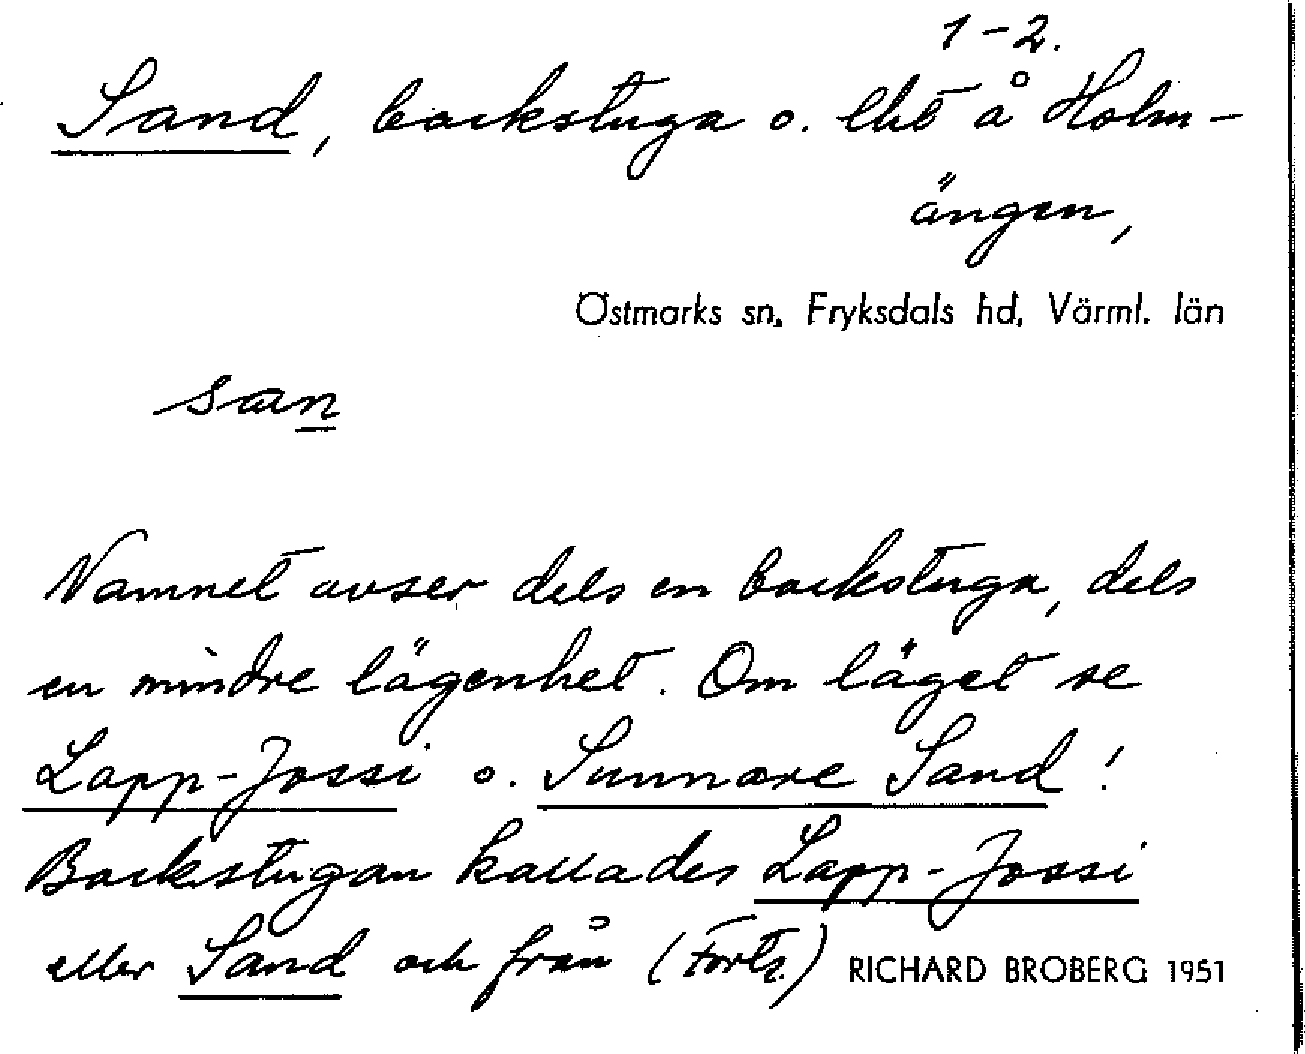 1-2.
Sand, backstuga o. lht å Holm-
ängen,
Östmarks sn, Fryksdals hd, Värml. län
san
Namnet avser dels en backstuga, dels
en mindre lägenhet. Om läget se
Lapp-Jossi o. Sunnare Sand!
Backstugan kallades Lapp-Jossi
eller Sand och från (Forts.)
RICHARD BROBERG 1951